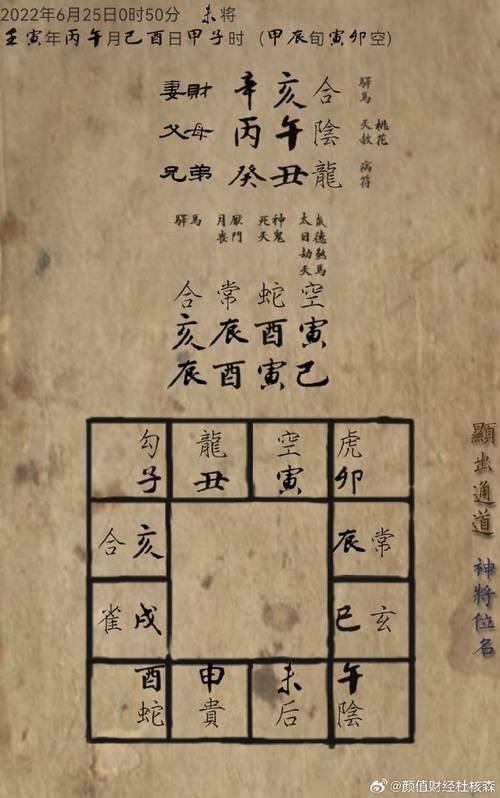 2022年6月25日0时50分 未将
壬寅年丙午月己酉日甲子时 (甲辰旬寅卯空)
妻財 辛亥合 驛馬
父母 丙午陰 天赦 桃花
兄弟 癸丑龍 病符
驛馬 月喪 厭門 死天 神鬼
合常蛇空
亥辰酉寅
辰酉寅己
勾 龍 空 虎
子 丑 寅 卯
合亥 辰常
雀戌 巳玄
酉 申 未 午
蛇 貴 后 陰
顯出通道 神將位名
@颜值财经杜核森